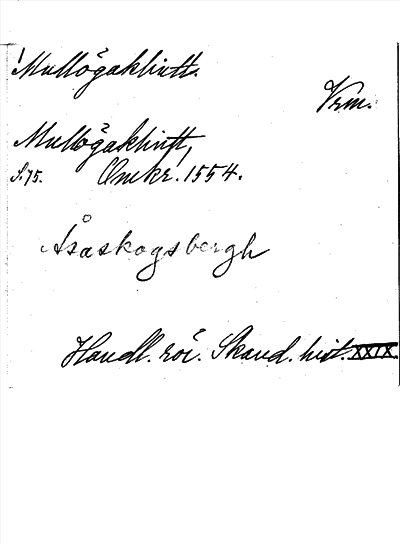 Mullögaklintt.
Vrm.
Mullögaklintt,
S. 75. Omkr. 1554.
Åsaskogsbergh
Handl. rör. Skand. hist. XXIX.